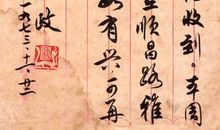 收到。丰周
顺昌路雅
有兴可再
政
一九七三·十一·廿